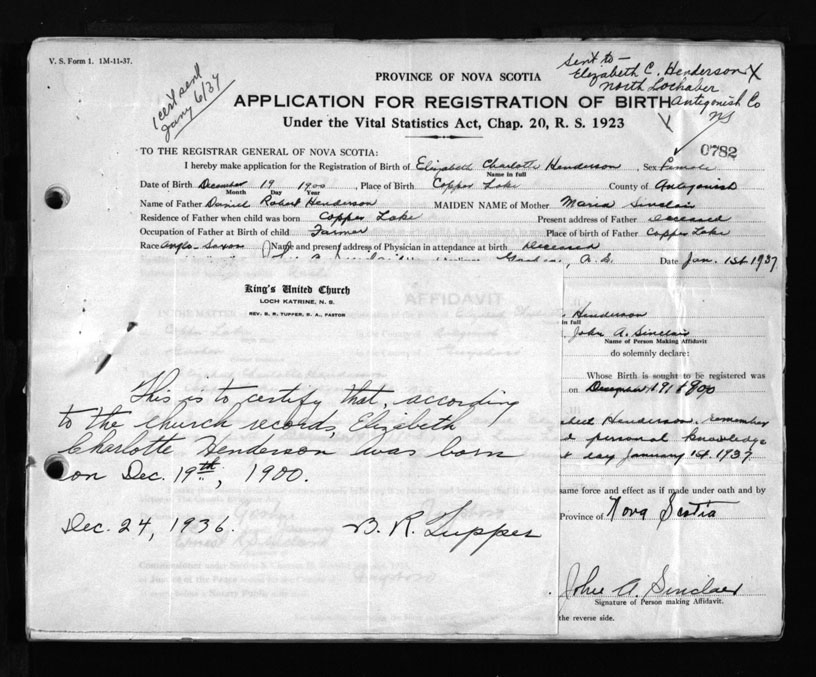 V. S. Form 1. 1M-11-37.
1 cert sent
Jany 6/37
sent to -
Elizabeth C. Henderson X
North Lochaber
Antigonish Co
NS
PROVINCE OF NOVA SCOTIA
APPLICATION FOR REGISTRATION OF BIRTH
Under the Vital Statistics Act, Chap. 20, R. S. 1923
0782
TO THE REGISTRAR GENERAL OF NOVA SCOTIA:
I hereby make application for the Registration of Birth of Elizabeth Charlotte Henderson, Sex Female
Name in full
Date of Birth December 19 1900, Place of Birth Copper Lake County of Antigonish
Month Day Year
Name of Father Daniel Robert Henderson MAIDEN NAME of Mother Maria Sinclair
Residence of Father when child was born Copper Lake Present address of Father Deceased
Occupation of Father at Birth of child Farmer Place of birth of Father Copper Lake
Race Anglo-Saxon Name and present address of Physician in attendance at birth Deceased
Date Jan. 1st 1937
King's United Church
LOCH KATRINE, N. S.
REV. B. R. TUPPER, B. A., PASTOR
AFFIDAVIT
This is to certify that, according
to the church records, Elizabeth
Charlotte Henderson was born
on Dec. 19th, 1900.
Dec. 24, 1936. B. R. Tupper
Henderson
in full
John A. Sinclair
Name of Person Making Affidavit
do solemnly declare:
Whose Birth is sought to be registered was
on December 19 1900
Henderson. remember
personal knowledge
day January 1st 1937
same force and effect as if made under oath and by
Province of Nova Scotia
John A. Sinclair
Signature of Person making Affidavit.
the reverse side.